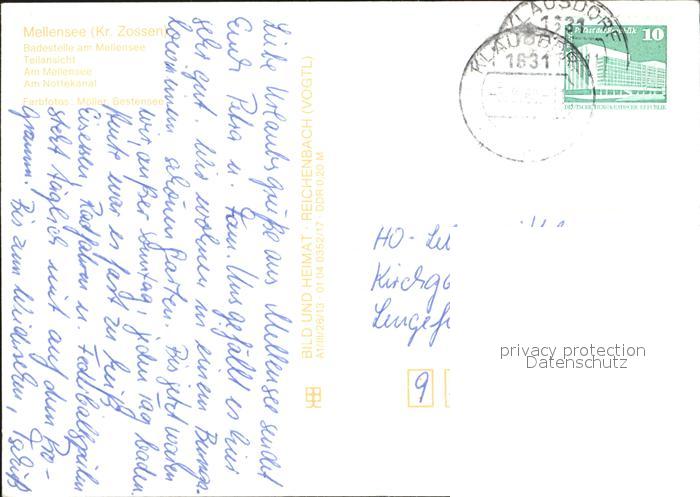 Mellensee (Kr. Zossen)
Badestelle am Mellensee
Teilansicht
Am Mellensee
Am Nottekanal
Farbfotos: Möller, Bestensee
Liebe Urlaubsgrüße aus Mellensee sendet
Euch Petra u. Fam. Uns gefällt es hier
sehr gut. Wir wohnen in einem Bunga-
low mit schönem Garten. Bis jetzt waren
wir, außer Sonntag, jeden Tag baden.
Heute war es fast zu heiß.
Eisessen, Radfahren u. Fußballspielen
steht täglich mit auf dem Pro-
gramm. Bis zum Wiedersehen, Tschüß
BILD UND HEIMAT · REICHENBACH (VOGTL)
A1/III/26/13 · 01 04 0352/17 · DDR 0,20 M
KLAUSDORF
1631
KLAUSDORF
1631
10
DEUTSCHE DEMOKRATISCHE REPUBLIK
HO-
Kirchg
Lengef
9
privacy protection
Datenschutz